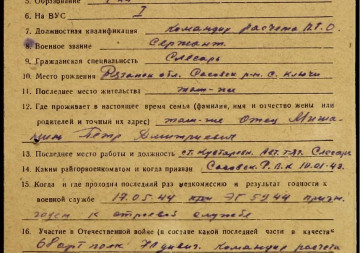 5. Образование
6. На ВУС I
7. Должностная квалификация Командир расчета П.Т.О.
8. Военное звание Сержант.
9. Гражданская специальность Слесарь
10. Место рождения Рязанск обл. Сасовск р-н. с. Ключи
11. Последнее место жительства там-же
12. Где проживает в настоящее время семья (фамилия, имя и отчество жены или
родителей и точный их адрес) там-же отец
Петр Дмитриевич
13. Последнее место работы и должность ст. Слесарь
14. Каким райгорвоенкоматом и когда призван Сасовск. Р.В.К 10.01-43.
15. Когда и где проходил последний раз медкомиссию и результат годности к
военной службе 19.05.44 ЭГ 5944 призн.
годен к строевой службе
16. Участие в Отечественной войне (в составе какой последней части и в качестве
полк Командир расчета